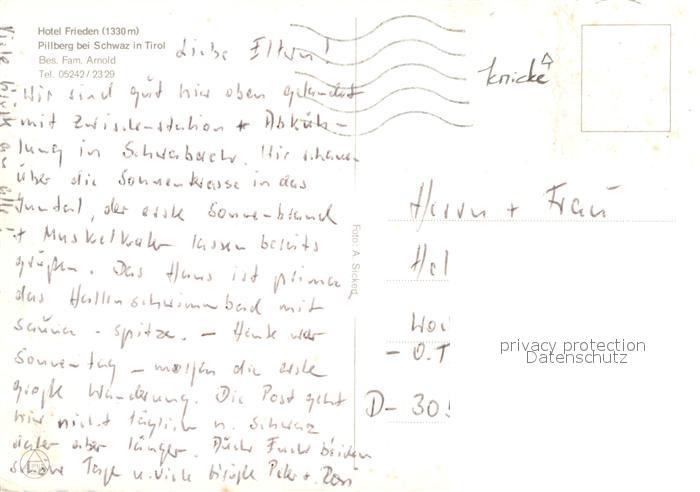 Hotel Frieden (1330 m)
Pillberg bei Schwaz in Tirol
Bes. Fam. Arnold
Tel. 05242/2329
Liebe Eltern!
Wir sind gut hier oben gelandet
mit Zwischenstation + Abküh-
lung in Schwabach. Wir schauen
über die Sonnenterrasse in das
Inntal, der erste Sonnenbrand
+ Muskelkater lassen bereits
grüßen. Das Haus ist prima
das Hallenschwimmbad mit
Sauna - spitze. - Heute war
Sonnentag - morgen die erste
große Wanderung. Die Post geht
hier nicht täglich n. Schwaz
daher aber länger. Euch beiden
schöne Tage u. viele Peter +
knicke
Herrn + Frau
Hel
Wo
- O.T
D- 30
Foto: A. Sickert
privacy protection
Datenschutz